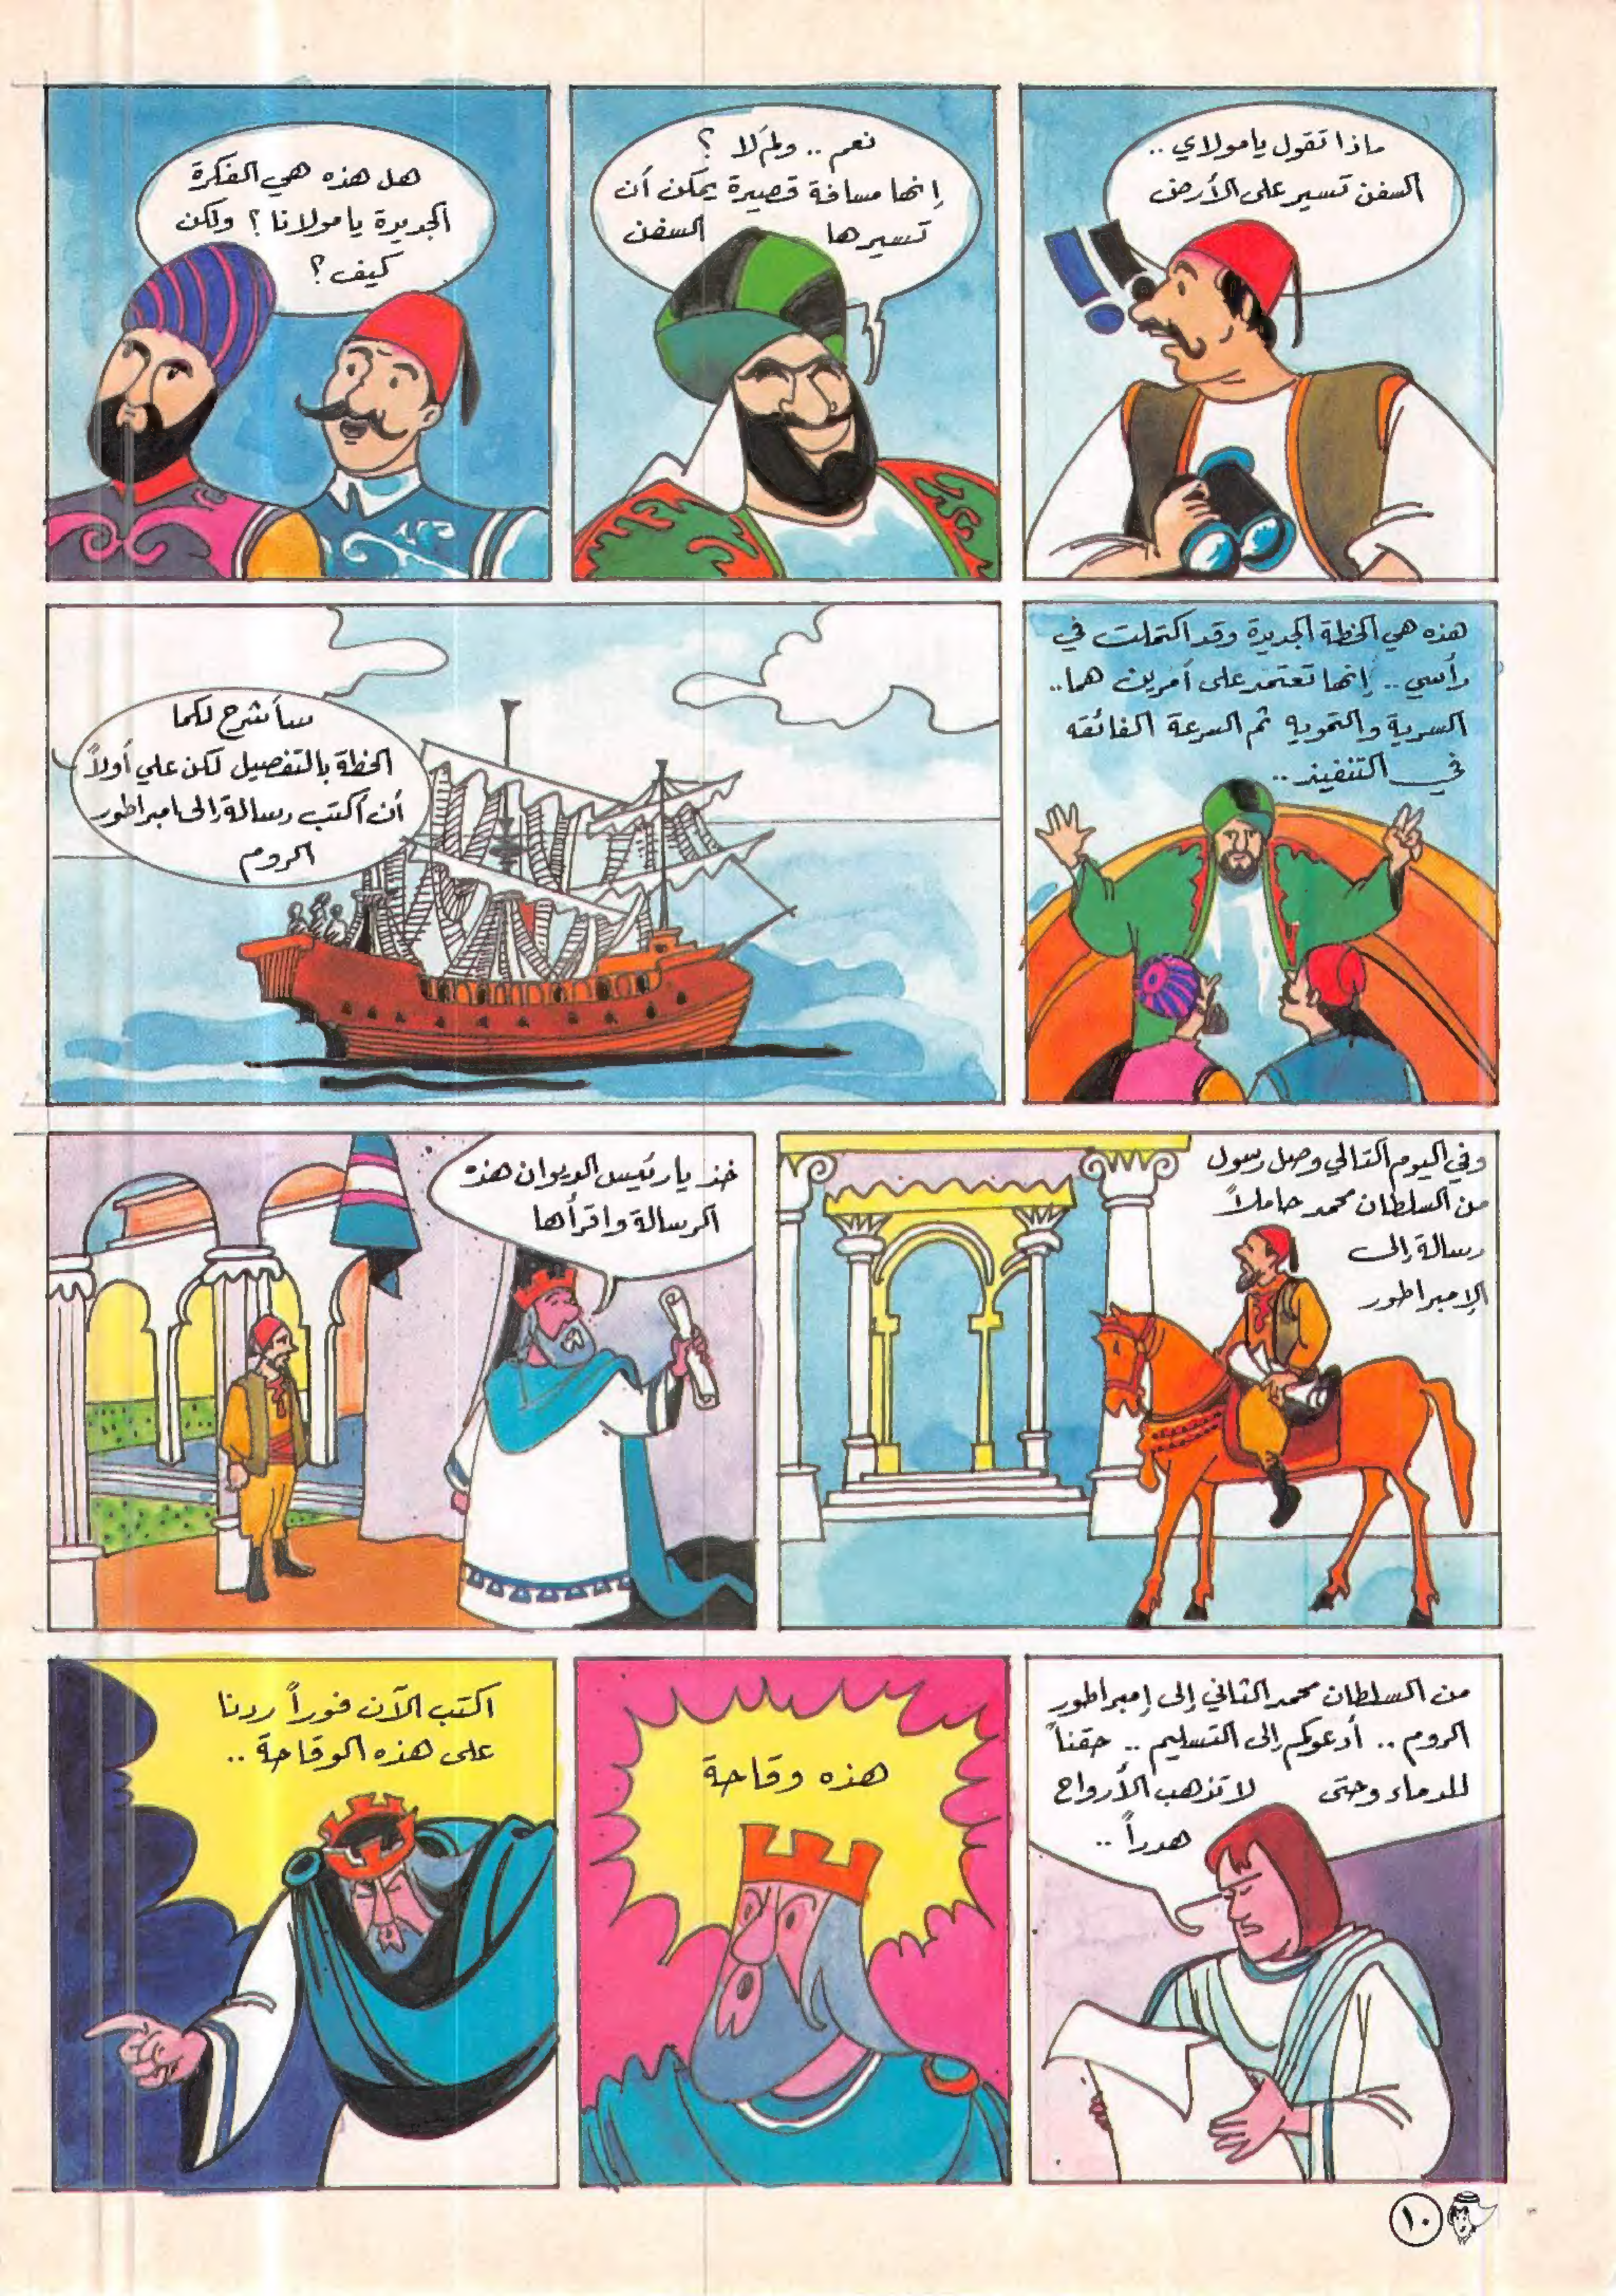 ماذا تقول يا مولاي ..
السفن تسير على الأرض
نعم .. ولمَ لا ؟
إنها مسافة قصيرة يمكن أن
تسيرها السفن
هل هذه هي الفكرة
الجديدة يا مولانا ؟ ولكن
كيف ؟
هذه هي الخطة الجديدة وقد اكتملت في
رأسي .. إنها تعتمد على أمرين هما ..
السرية والتمويه ثم السرعة الفائقه
في التنفيذ ..
سأشرح لكما
الخطة بالتفصيل لكن علي أولاً
أن أكتب رسالة إلى امبراطور
الروم
وفي اليوم التالي وصل رسول
من السلطان محمد حاملاً
رسالة إلى
الإمبراطور
خذ يا رئيس الديوان هذه
الرسالة واقرأها
من السلطان محمد الثاني إلى إمبراطور
الروم .. أدعوكم إلى التسليم .. حقناً
للدماء وحتى لا تذهب الأرواح
هدراً ..
هذه وقاحة
اكتب الآن فوراً ردنا
على هذه الوقاحة ..
١٠